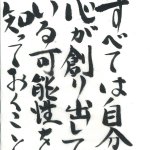 すべては自分
心が創り出して
いる可能性を
知っておくこと